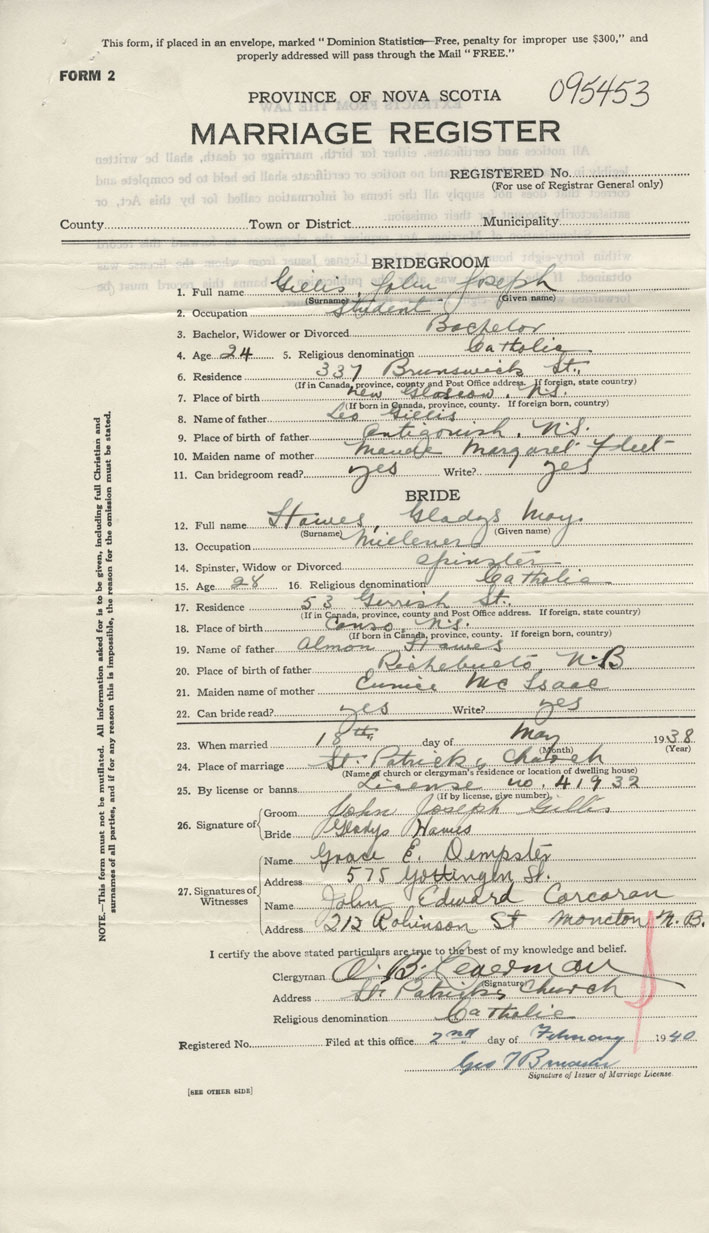 This form, if placed in an envelope, marked "Dominion Statistics—Free, penalty for improper use $300," and
properly addressed will pass through the Mail "FREE."
FORM 2
PROVINCE OF NOVA SCOTIA 095453
MARRIAGE REGISTER
REGISTERED No.
(For use of Registrar General only)
County Town or District Municipality
BRIDEGROOM
1. Full name Gillis, John Joseph
(Surname) (Given name)
2. Occupation Student
3. Bachelor, Widower or Divorced Bachelor
4. Age 24 5. Religious denomination Catholic
6. Residence 337 Brunswick St.,
(If in Canada, province, county and Post Office address. If foreign, state country)
7. Place of birth New Glasgow, N.S.
(If born in Canada, province, county. If foreign born, country)
8. Name of father Leo Gillis
9. Place of birth of father Antigonish, N.S.
10. Maiden name of mother Maude Margaret Fleet
11. Can bridegroom read? yes Write? yes
BRIDE
12. Full name Hawes, Gladys May.
(Surname) (Given name)
13. Occupation Millener
14. Spinster, Widow or Divorced Spinster
15. Age 28 16. Religious denomination Catholic
17. Residence 53 Gerrish St.
(If in Canada, province, county and Post Office address. If foreign, state country)
18. Place of birth Canso N.S.
(If born in Canada, province, county. If foreign born, country)
19. Name of father Almon Hawes
20. Place of birth of father Richebucto, N.B
21. Maiden name of mother Eunice McIsaac
22. Can bride read? yes Write? yes
23. When married 18th day of May 1938
(Month) (Year)
24. Place of marriage St. Patricks Church
(Name of church or clergyman's residence or location of dwelling house)
25. By license or banns License no. 41932
(If by license, give number)
26. Signature of Groom John Joseph Gillis
Bride Gladys Hawes
27. Signatures of Witnesses
Name Grace E. Dempster
Address 575 Gottingen St.
Name John Edward Corcoran
Address 212 Robinson St Moncton N.B.
I certify the above stated particulars are true to the best of my knowledge and belief.
Clergyman
(Signature)
Address St. Patricks Church
Religious denomination Catholic
Registered No. Filed at this office 2nd day of February 1940
Geo
Signature of Issuer of Marriage License.
[SEE OTHER SIDE]
NOTE.—This form must not be mutilated. All information asked for is to be given, including full Christian and
surnames of all parties, and if for any reason this is impossible, the reason for the omission must be stated.